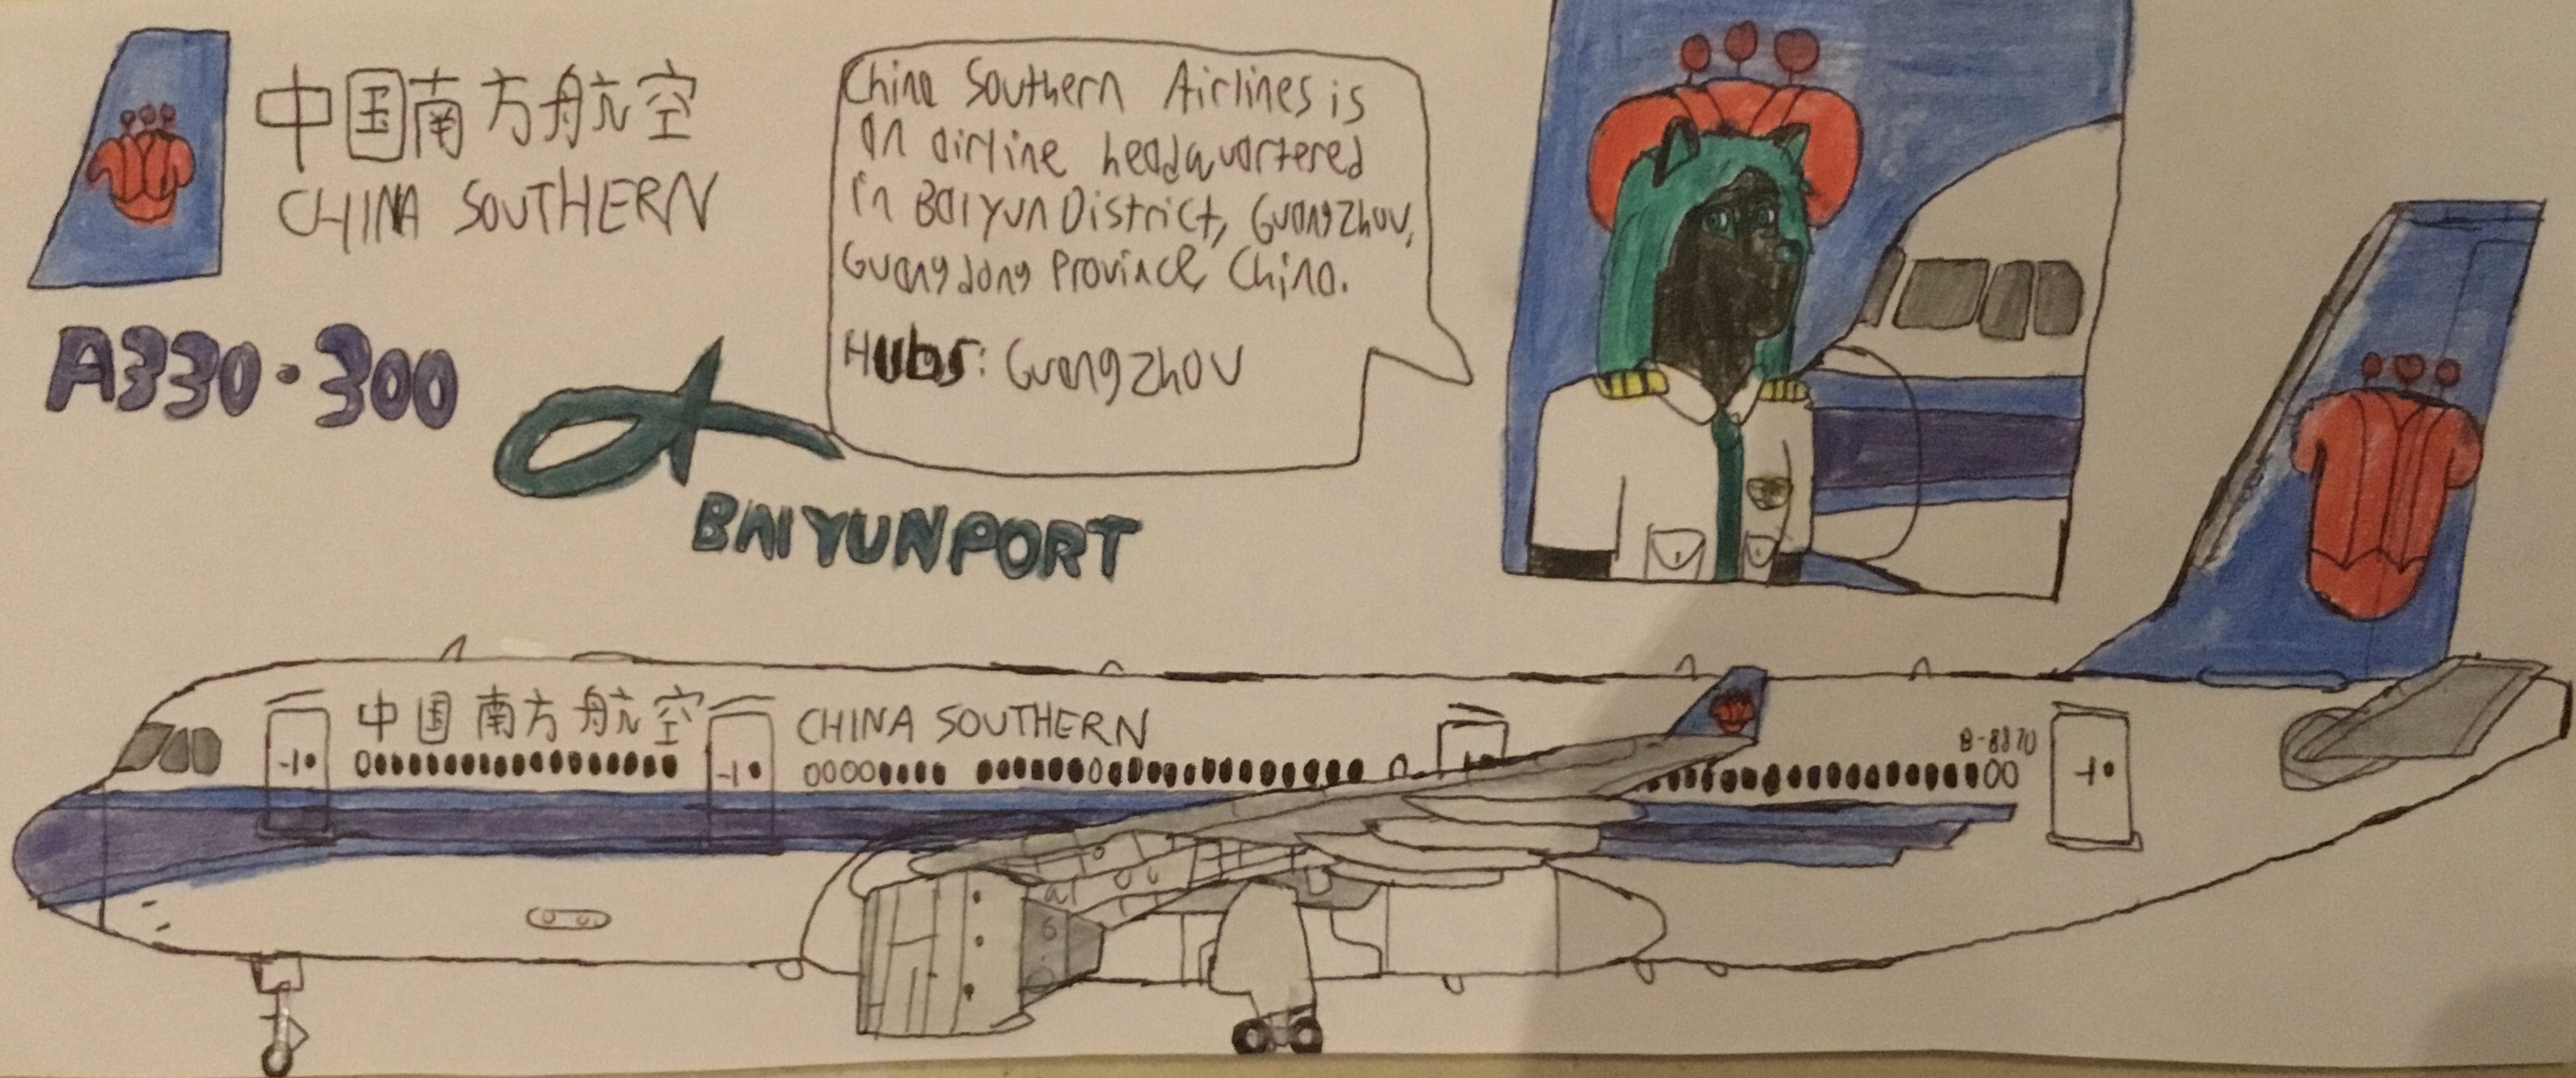 中国南方航空
CHINA SOUTHERN
A330-300
BAIYUNPORT
China Southern Airlines is
an airline headquartered
in Baiyun District, Guangzhou,
Guangdong Province, China.
Hubs: Guangzhou
中国南方航空
CHINA SOUTHERN
B-8870